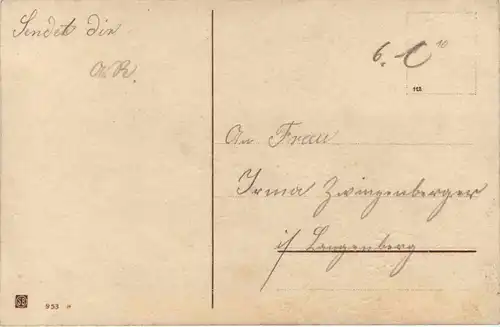 Sendet dir
A. R.
6.-
10
112
An Frau
Irma Zwingenberger
i/ Langenberg
953